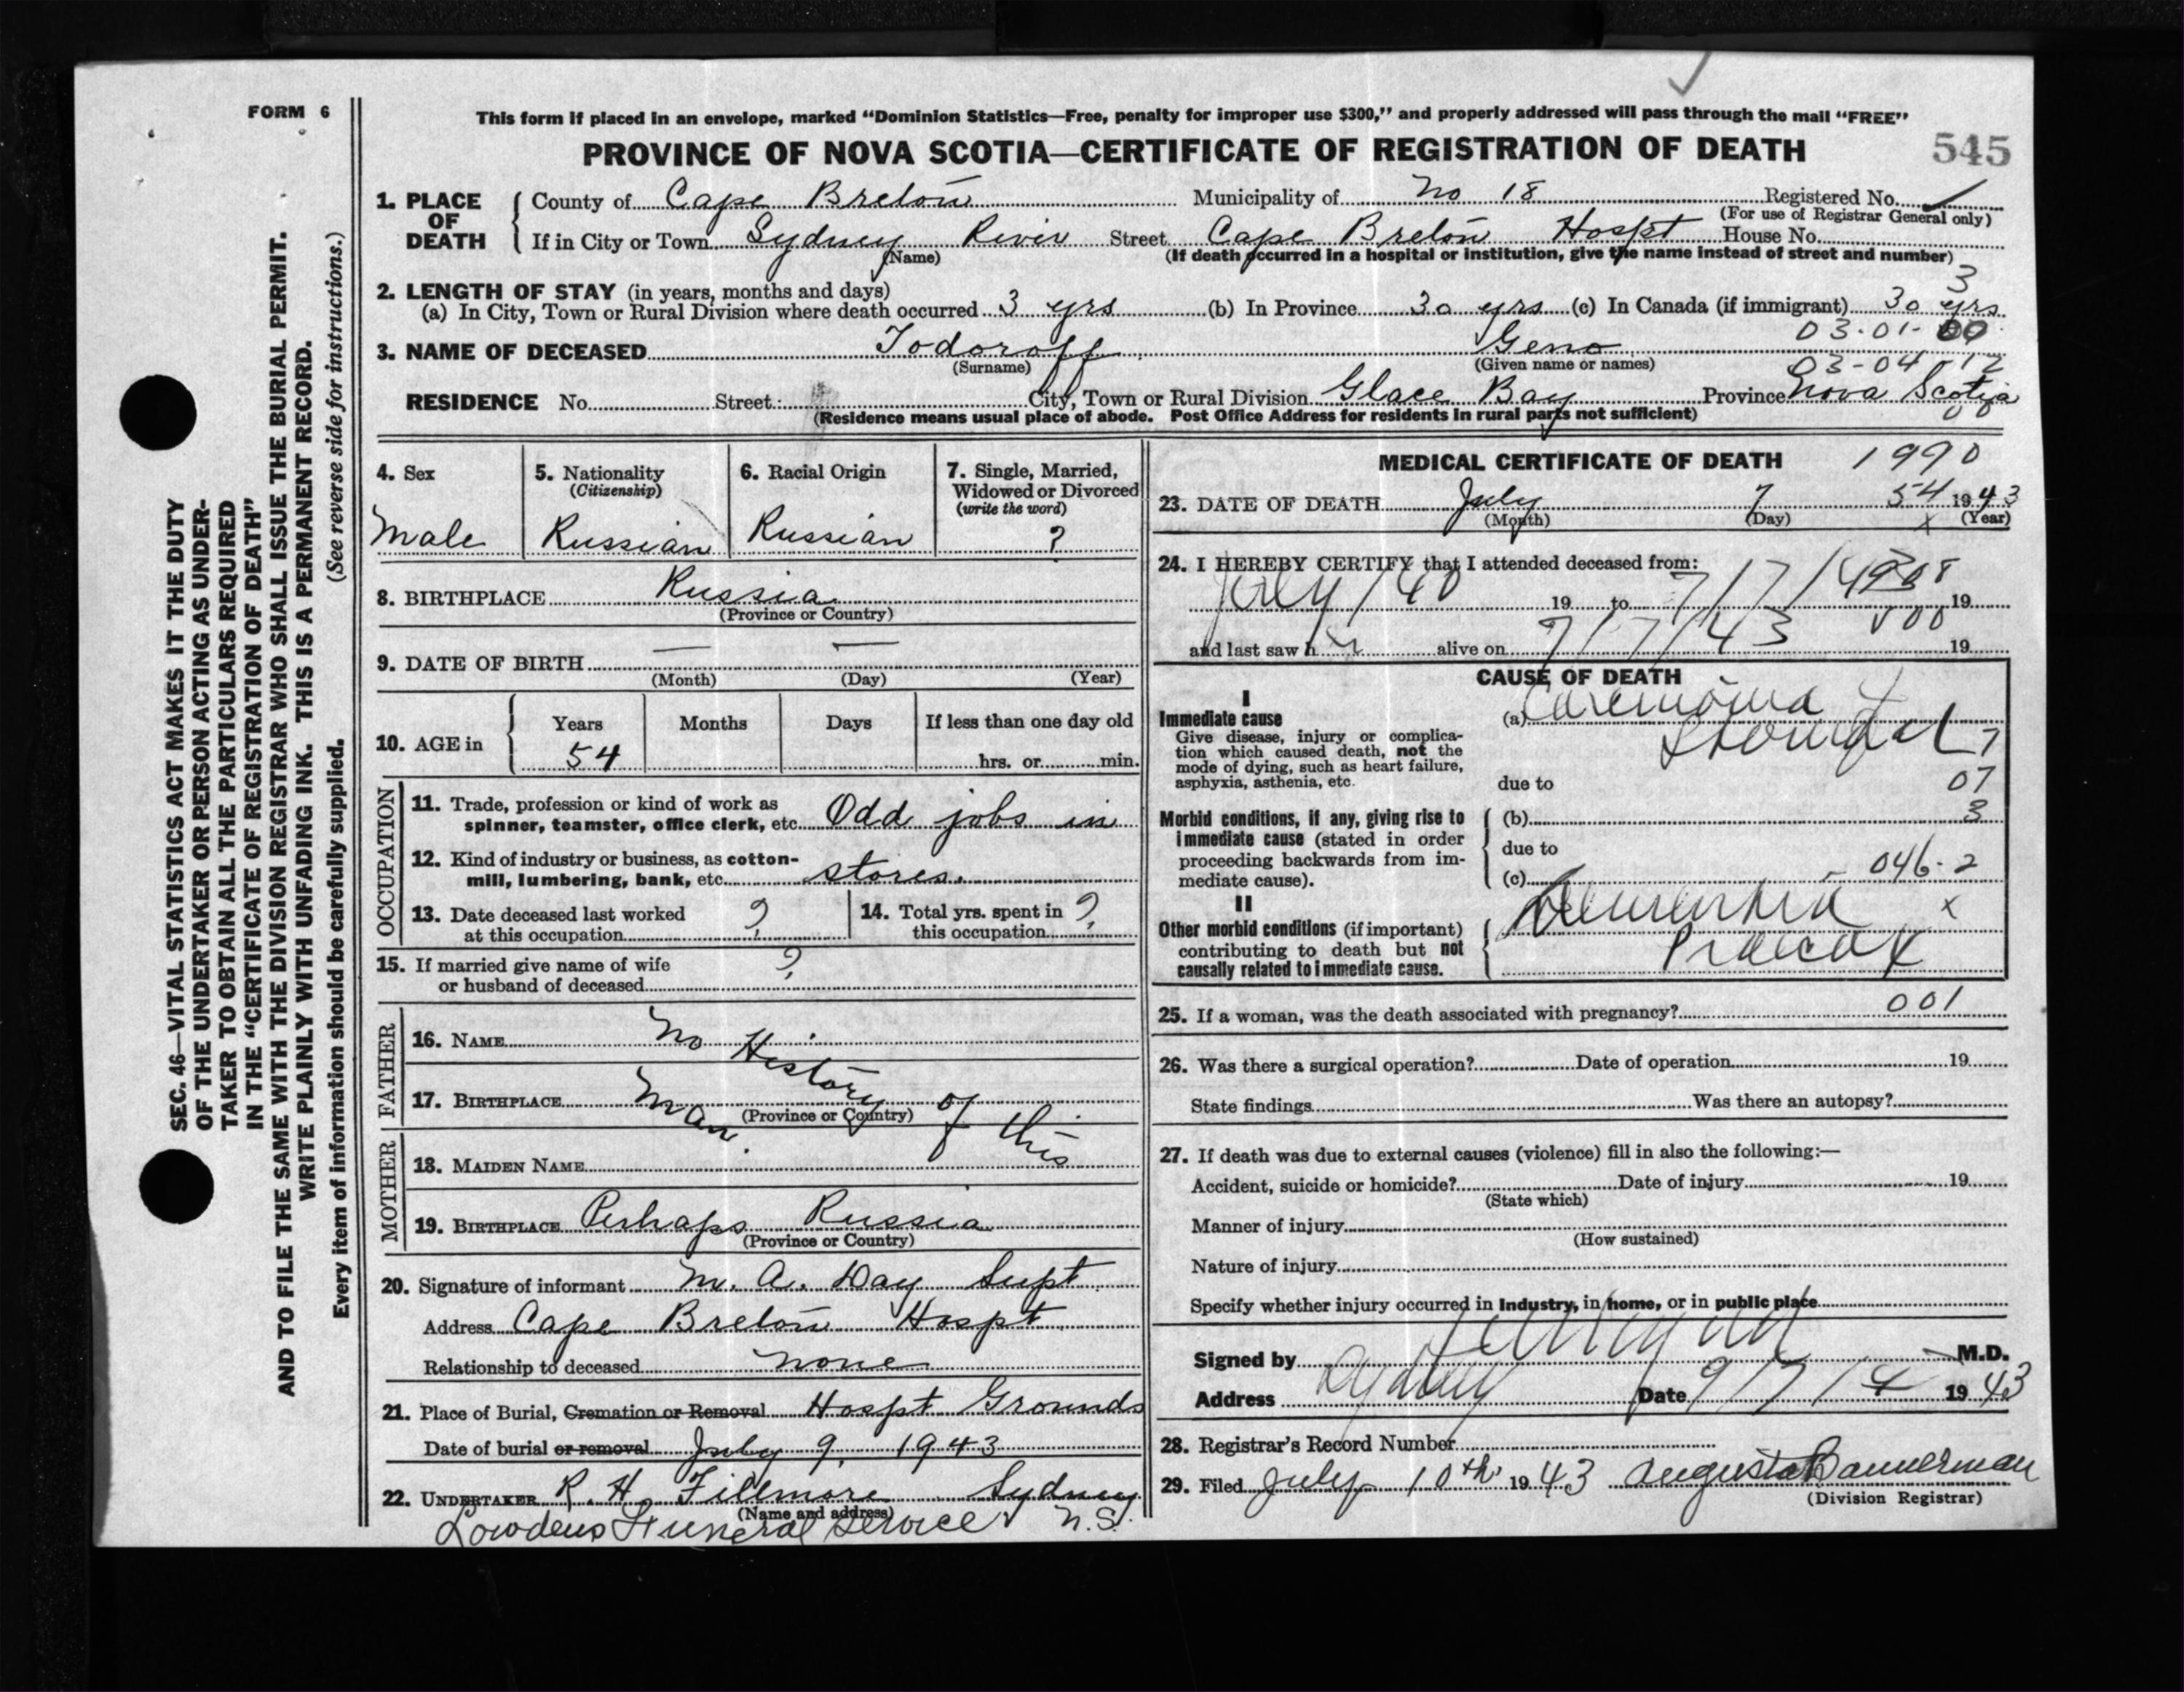 FORM 6
This form if placed in an envelope, marked “Dominion Statistics—Free, penalty for improper use $300,” and properly addressed will pass through the mail “FREE”
PROVINCE OF NOVA SCOTIA—CERTIFICATE OF REGISTRATION OF DEATH 545
SEC. 46—VITAL STATISTICS ACT MAKES IT THE DUTY
OF THE UNDERTAKER OR PERSON ACTING AS UNDER-
TAKER TO OBTAIN ALL THE PARTICULARS REQUIRED
IN THE “CERTIFICATE OF REGISTRATION OF DEATH”
AND TO FILE THE SAME WITH THE DIVISION REGISTRAR WHO SHALL ISSUE THE BURIAL PERMIT.
WRITE PLAINLY WITH UNFADING INK. THIS IS A PERMANENT RECORD.
Every item of information should be carefully supplied. (See reverse side for instructions.)
1. PLACE OF DEATH
County of Cape Breton Municipality of No 18 Registered No.
(For use of Registrar General only)
If in City or Town Sydney River Street Cape Breton Hospt House No.
(Name) (If death occurred in a hospital or institution, give the name instead of street and number)
3
2. LENGTH OF STAY (in years, months and days)
(a) In City, Town or Rural Division where death occurred 3 yrs (b) In Province 30 yrs (c) In Canada (if immigrant) 30 yrs
03-01-
3. NAME OF DECEASED Todoroff Geno
(Surname) (Given name or names)
03-04-12
RESIDENCE No. Street City, Town or Rural Division Glace Bay Province Nova Scotia
(Residence means usual place of abode. Post Office Address for residents in rural parts not sufficient)
4. Sex
Male
5. Nationality
(Citizenship)
Russian
6. Racial Origin
Russian
7. Single, Married,
Widowed or Divorced
(write the word)
?
8. BIRTHPLACE Russia
(Province or Country)
9. DATE OF BIRTH — —
(Month) (Day) (Year)
10. AGE in
Years Months Days If less than one day old
54 hrs. or min.
OCCUPATION
11. Trade, profession or kind of work as
spinner, teamster, office clerk, etc. Odd jobs in
12. Kind of industry or business, as cotton-
mill, lumbering, bank, etc. stores.
13. Date deceased last worked
at this occupation ?
14. Total yrs. spent in
this occupation ?
15. If married give name of wife
or husband of deceased ?
FATHER
16. NAME No History of this
17. BIRTHPLACE Man.
(Province or Country)
MOTHER
18. MAIDEN NAME
19. BIRTHPLACE Perhaps Russia
(Province or Country)
20. Signature of informant M. A. Day Supt.
Address Cape Breton Hospt.
Relationship to deceased none
21. Place of Burial, Cremation or Removal Hospt Grounds
Date of burial or removal July 9, 1943
22. UNDERTAKER R. H. Fillmore Sydney
(Name and address)
Lowdens Funeral Service N.S.
MEDICAL CERTIFICATE OF DEATH 1990
23. DATE OF DEATH July 7 54 1943
(Month) (Day) (Year)
x
24. I HEREBY CERTIFY that I attended deceased from:
July/40 19 to 7/7/43 19
and last saw h alive on 7/7/43 19
CAUSE OF DEATH
I
Immediate cause
Give disease, injury or complica-
tion which caused death, not the
mode of dying, such as heart failure,
asphyxia, asthenia, etc.
(a) Carcinoma of
Stomach 7
due to 07
Morbid conditions, if any, giving rise to
immediate cause (stated in order
proceeding backwards from im-
mediate cause).
(b) 3
due to
(c) 046-2
II
Other morbid conditions (if important)
contributing to death but not
causally related to immediate cause.
Dementia x
Praecox
25. If a woman, was the death associated with pregnancy? 001
26. Was there a surgical operation? Date of operation 19
State findings Was there an autopsy?
27. If death was due to external causes (violence) fill in also the following:—
Accident, suicide or homicide? Date of injury 19
(State which)
Manner of injury
(How sustained)
Nature of injury
Specify whether injury occurred in Industry, in home, or in public place
Signed by M.D.
Address Sydney Date 9/7/4 1943
28. Registrar's Record Number
29. Filed July 10th 1943 Augusta Bannerman
(Division Registrar)